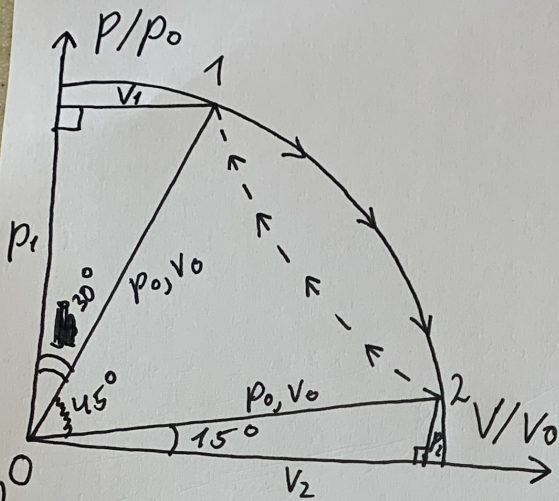 P/p₀
1
V₁
p₁
30°
p₀, V₀
45°
p₀, V₀
2
V/V₀
15°
p₂
0
V₂